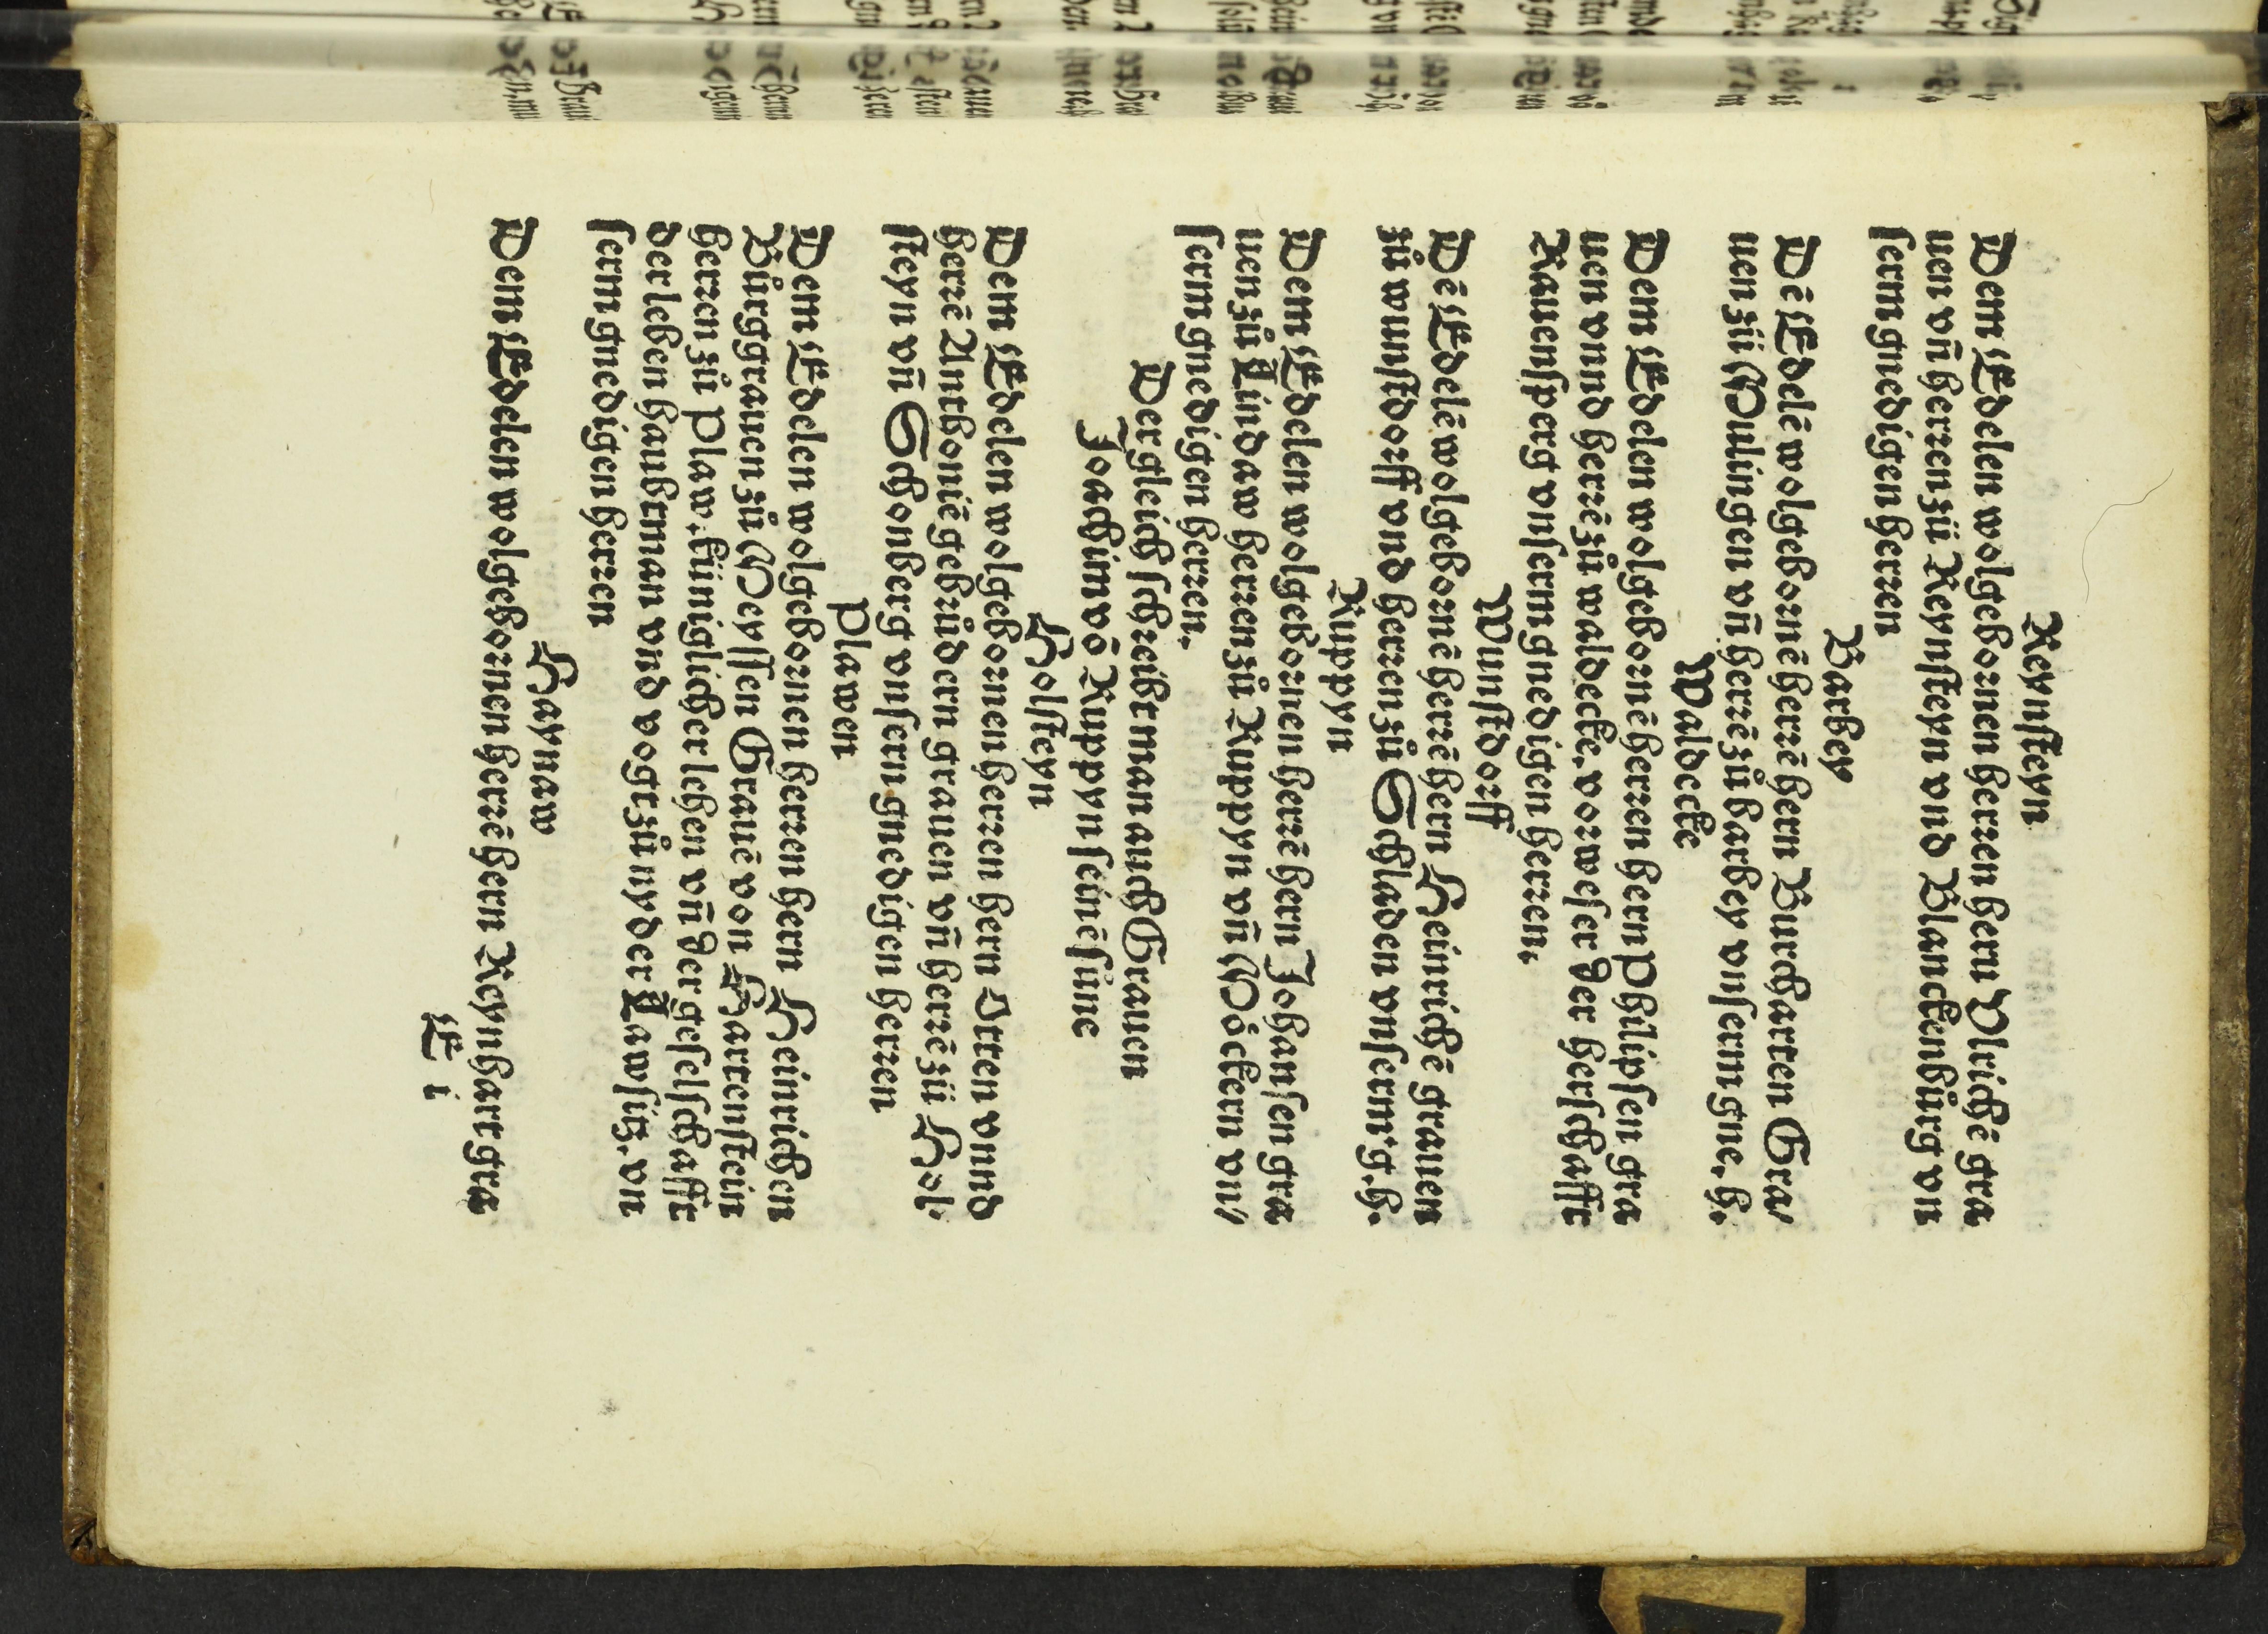 Reynsteyn
Dem Edelen wolgebornen herren hern Vlrichē gra
uen vn̄ herren zů Reynsteyn vnd Blanckenbůrg vn
serm gnedigen herren
Barbey
Dē Edelē wolgebornē herrē hern Burcharten Gra/
uen zů Mulingen vn̄ herrē zů barbey vnserm gne. h.
Waldecke
Dem Edelen wolgebornē herren hern Philipsen gra
uen vnnd herrē zů waldecke. vorweser der herschafft
Rauensperg vnserm gnedigen herren.
Wunstdorff
Dē Edelē wolgebornē herrē hern Heinrichē grauen
zů wunstdorff vnd herren zů Schladen vnserm. g. h.
Ruppyn
Dem Edelen wolgebornen herrē hern Johansen gra
uen zů Lindaw herren zů Ruppyn vn̄ Mōckern vn/
serm gnedigen herren.
Dergleich schreibt man auch Grauen
Joachim vō Ruppyn seinē sune
Holsteyn
Dem Edelen wolgebornen herren hern Otten vnnd
herrē Anthoniē gebrůdern grauen vn̄ herrē zů Hol/
steyn vn̄ Schonberg vnsern gnedigen herren
Plawen
Dem Edelen wolgebornen herren hern Heinrichen
Bůrggrauen zů Meyssen Grauē von Hartenstein
herren zů Plaw. kůniglicher lehen vn̄ der geselschafft
der leben haubtman vnd vogt zů nyder Lawsitz. vn
serm gnedigen herren
Haynaw
Dem Edelen wolgebornen herrē hern Reynhart gra
E i